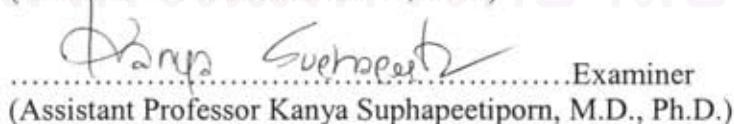 Kanya Suphapeet
........................................................Examiner
(Assistant Professor Kanya Suphapeetiporn, M.D., Ph.D.)